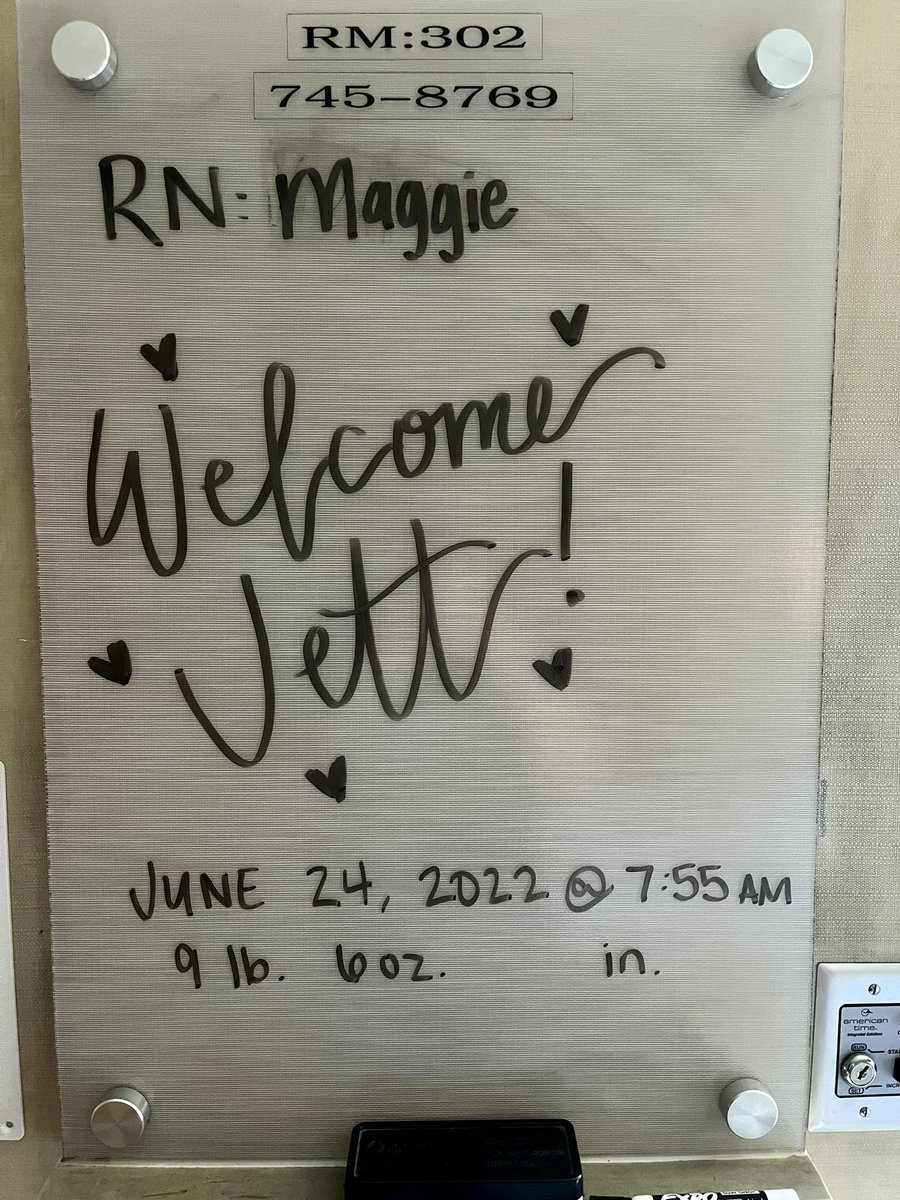 RM:302
745-8769
RN: Maggie
Welcome
Jett!
JUNE 24, 2022 @ 7:55 AM
9 lb. 6 oz. in.
american
time.
Integrated Solutions
RUN
SET
EXPO